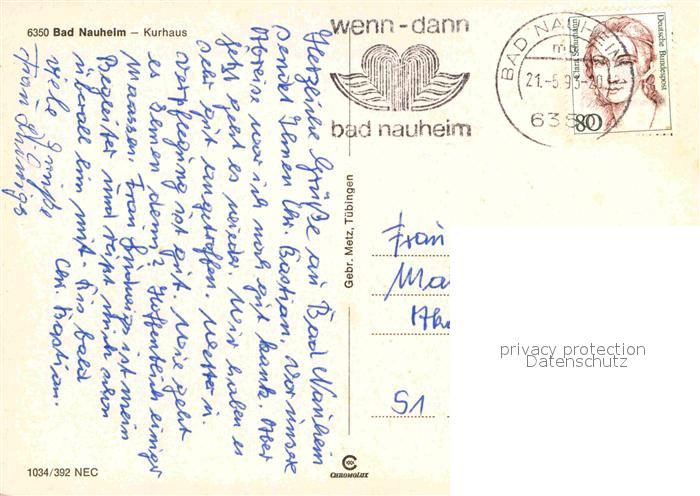 6350 Bad Nauheim – Kurhaus
wenn-dann
bad nauheim
BAD NAUHEIM
21.-6.93-20
Deutsche Bundespost
80
Herzliche Grüße aus Bad Nauheim
sendet Ihnen Chr. Bastian. Vor unserer
Abreise war ich noch gut krank. Aber
jetzt geht es wieder. Wir haben es
sehr gut angetroffen. Wetter u.
Verpflegung ist gut. Wie geht
es Ihnen denn? Hoffentlich einiger
Maassen. Frau Ludwig ist mein
Begleiter und reißt mich schon
überall hin mit. Bis bald
Chr. Bastian.
viele Grüße
Frau
Gebr. Metz, Tübingen
Frau
S1
privacy protection
Datenschutz
1034/392 NEC
CHROMOLUX